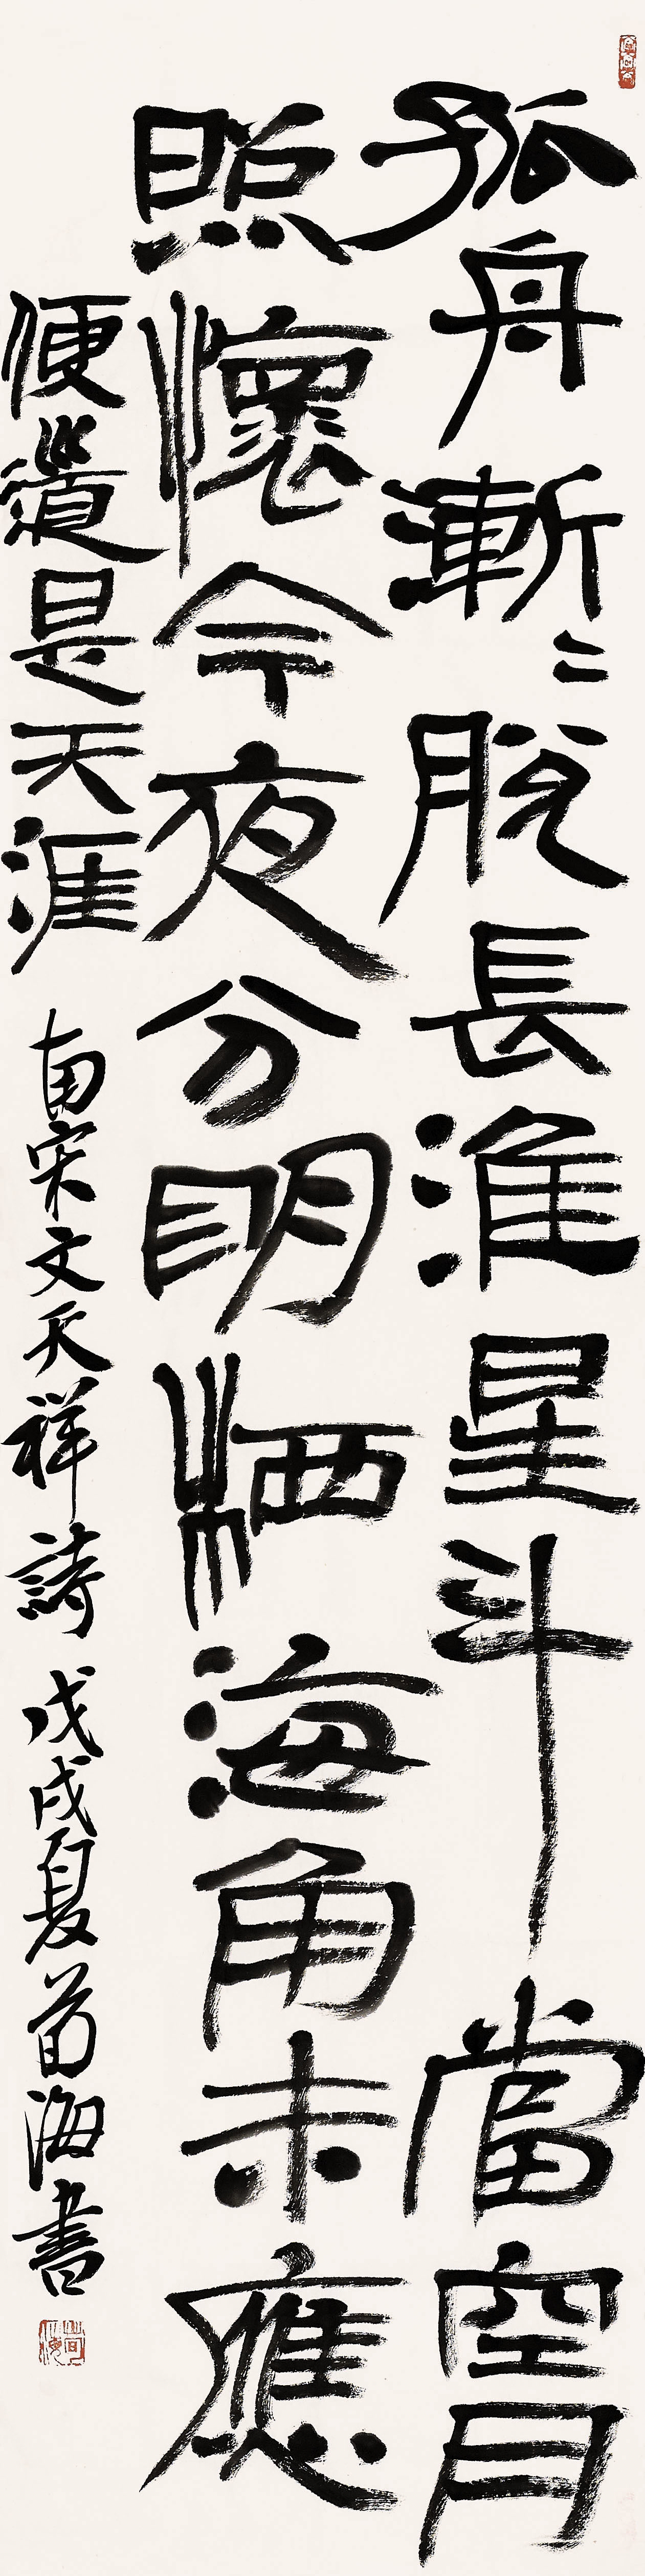 孤舟漸〻脫長淮星斗當空月
照懷今夜分明栖海角未應
便道是天涯 南宋文天祥詩 戊戌夏荀海書
荀海